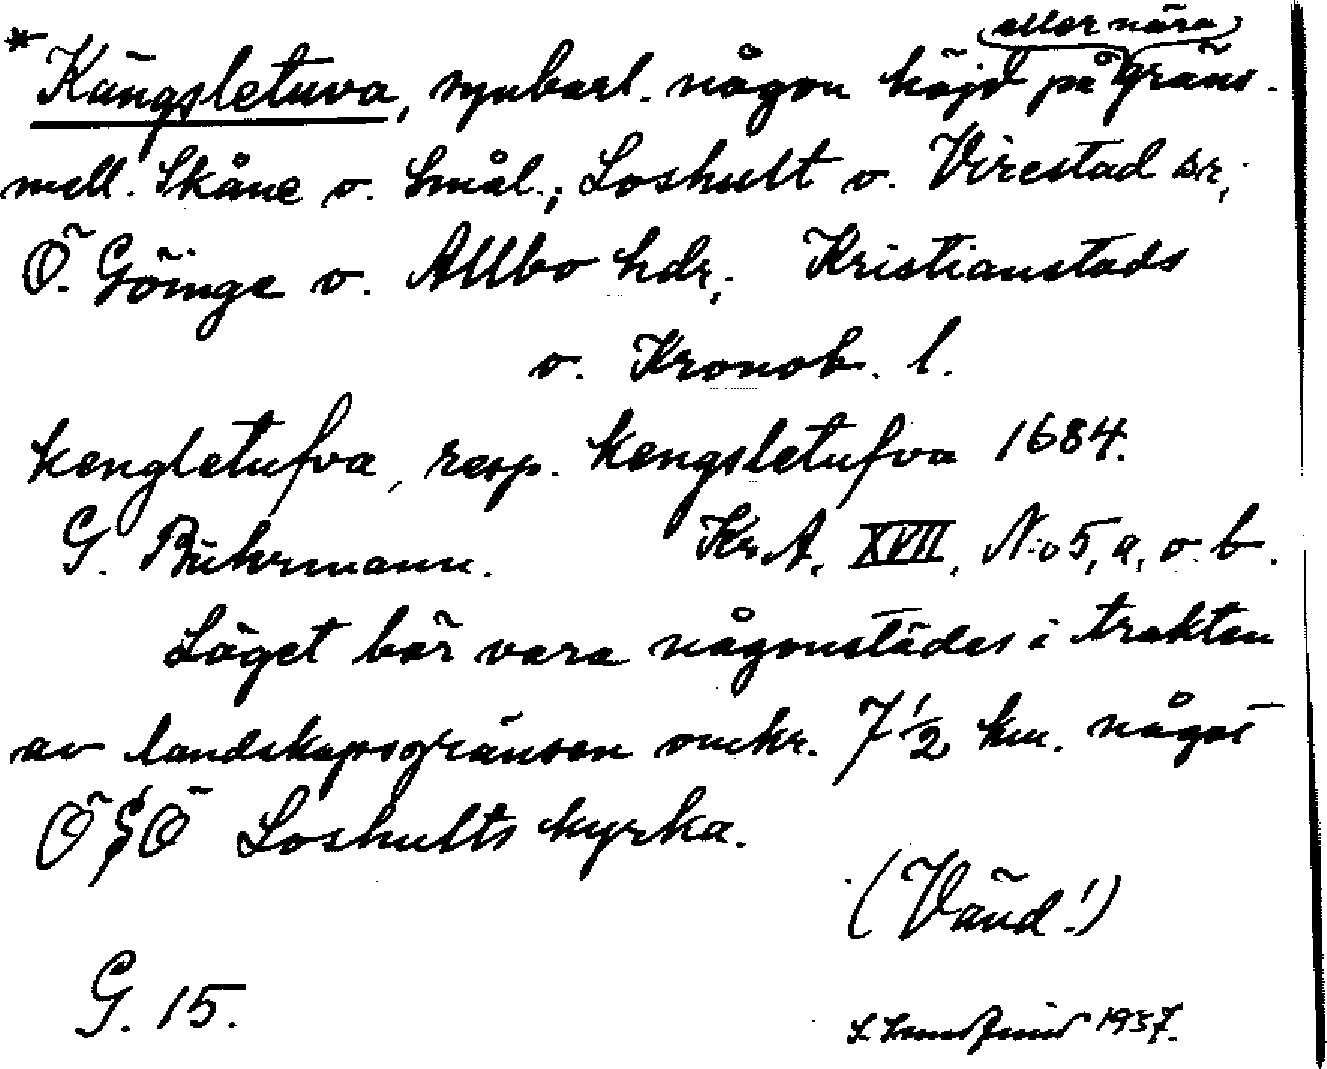 eller nära
* Kängsletuva, synbarl. någon höjd på gräns.
mell. Skåne o. Smål.; Loshult o. Virestad sr,;
Ö. Göinge o. Allbo hdr,; Kristianstads
o. Kronob. l.
kengletufva, resp. kengsletufva 1684.
G. Buhrmann. Kr. A. XVII, No 5, a, o. b.
Läget bör vara någonstädes i trakten
av landskapsgränsen omkr. 7 1/2 km. något
Ö § Ö Loshults kyrka.
(Vänd!)
G. 15.
1937.